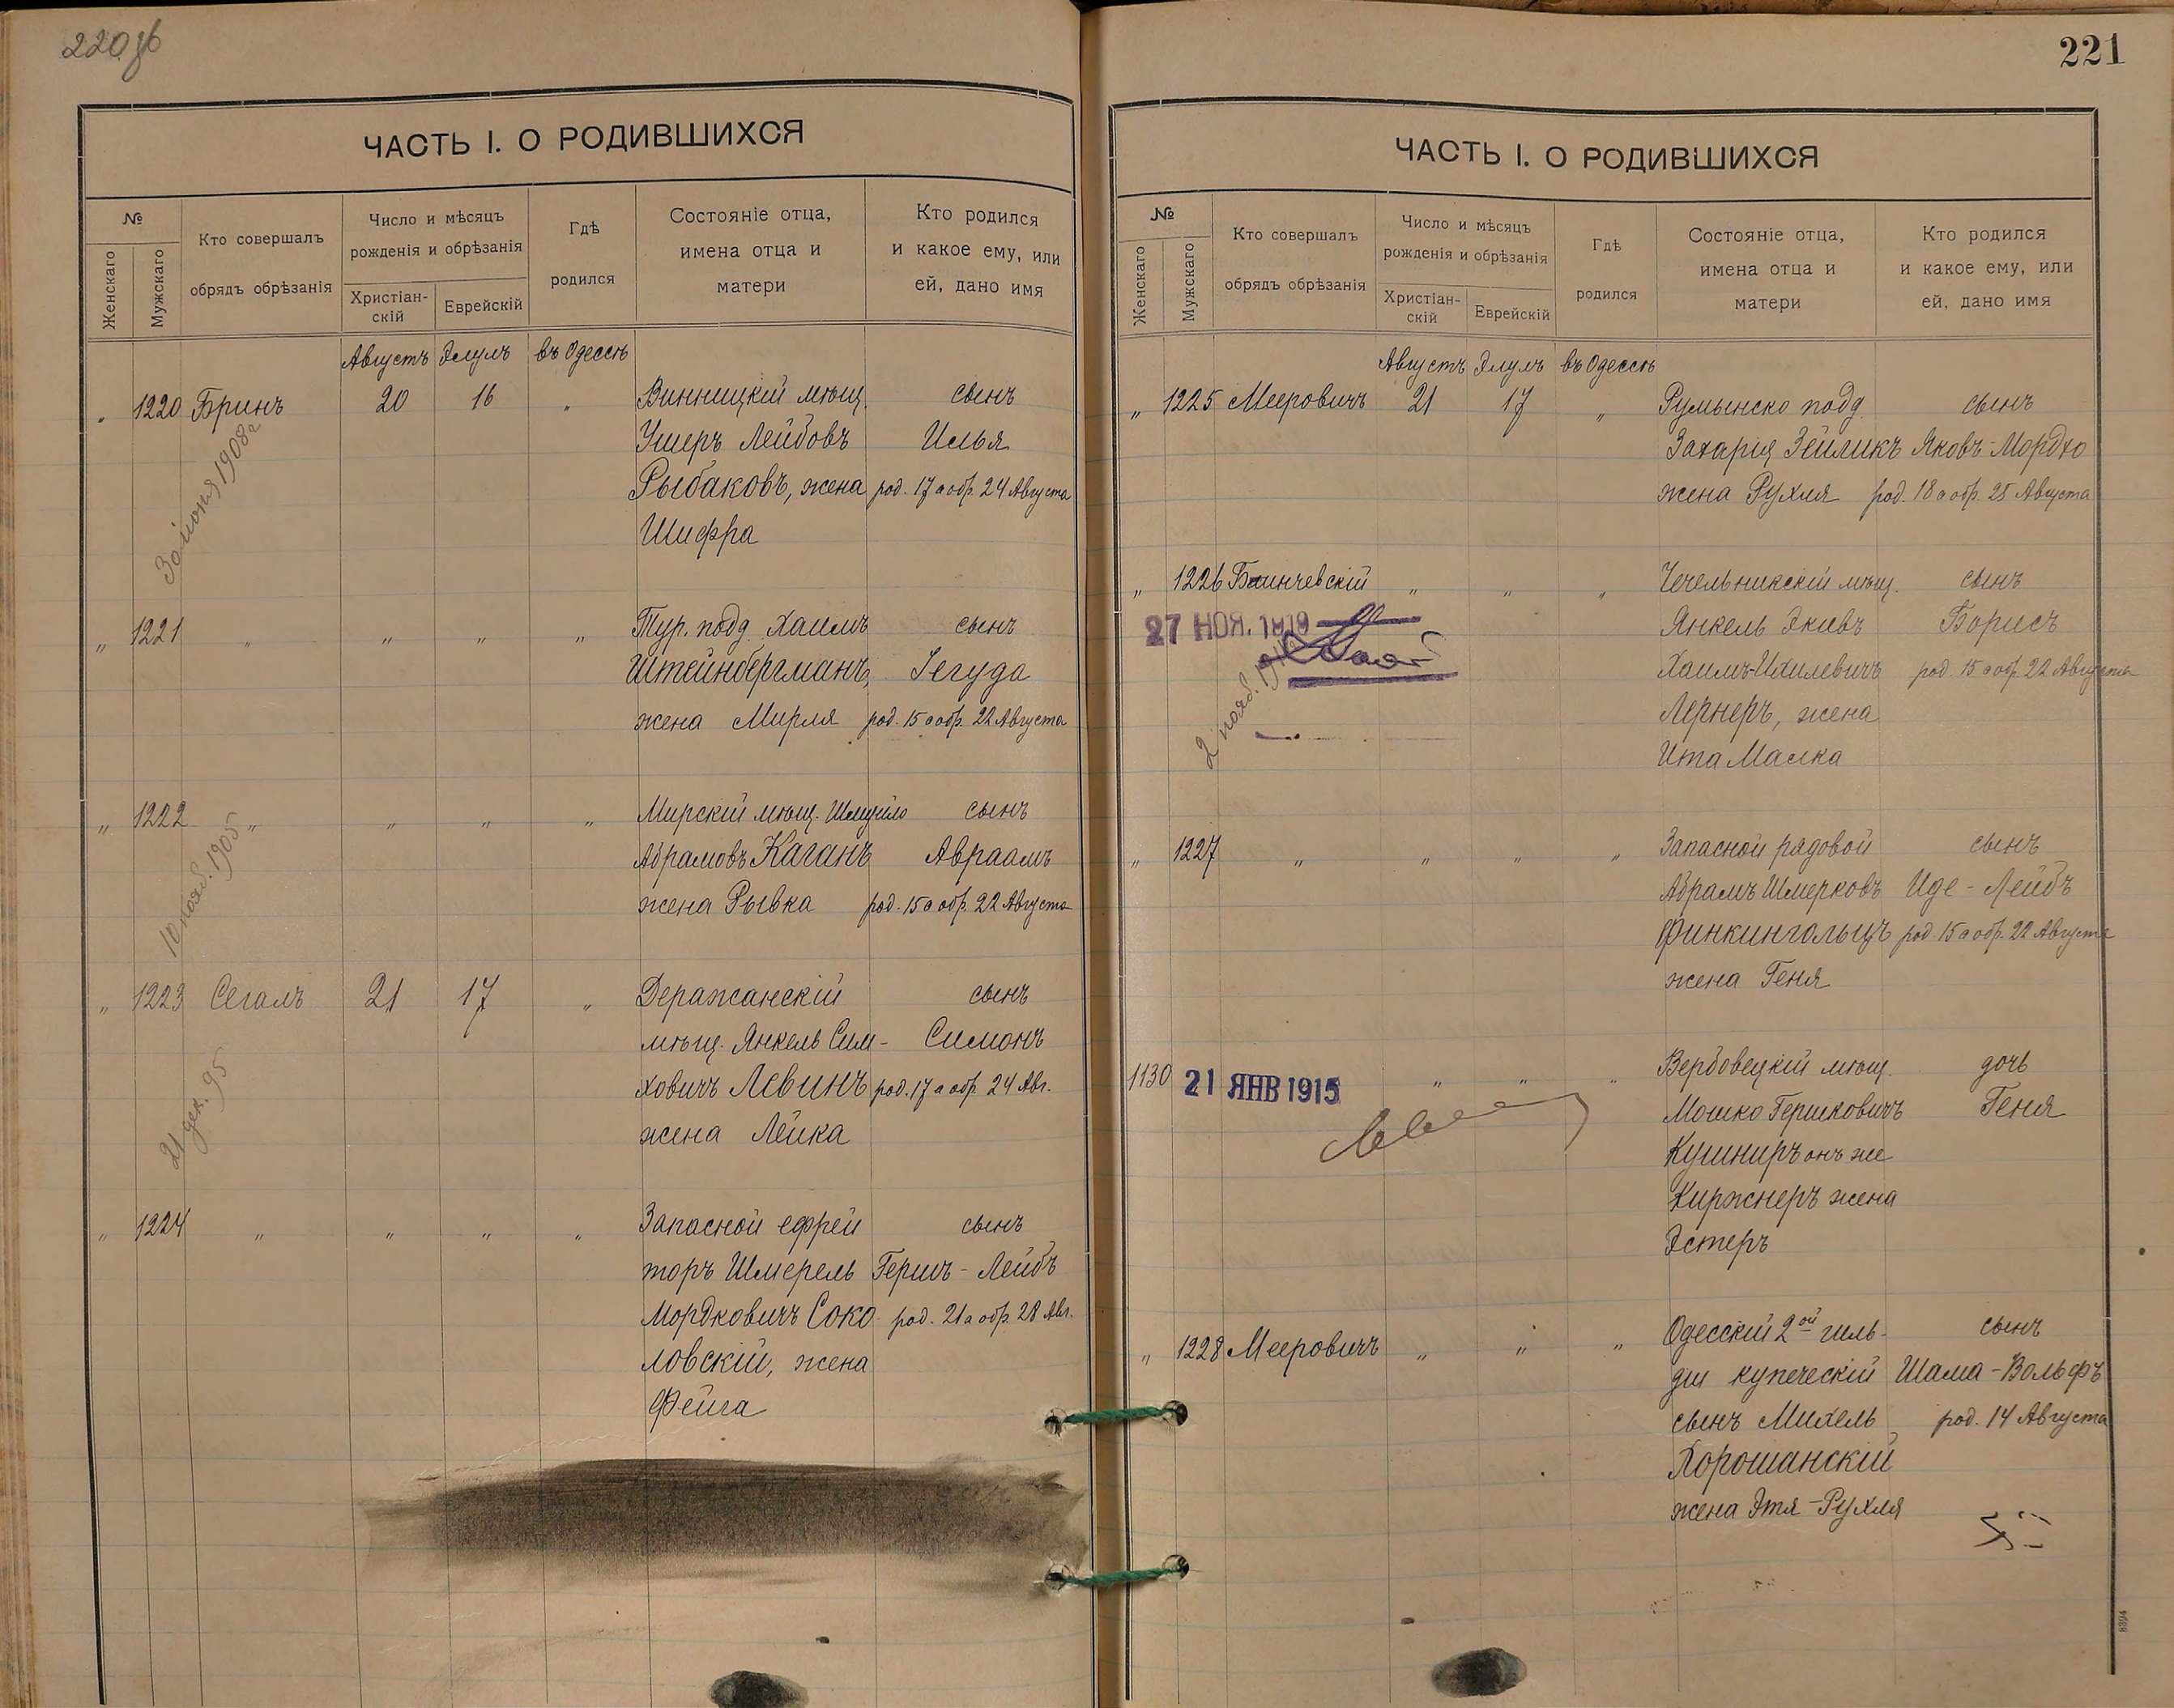 220 об
ЧАСТЬ I. О РОДИВШИХСЯ
№
Женскаго
Мужскаго
Кто совершалъ
обрядъ обрѣзанія
Число и мѣсяцъ
рожденія и обрѣзанія
Христіан-
скій
Еврейскій
Гдѣ
родился
Состояніе отца,
имена отца и
матери
Кто родился
и какое ему, или
ей, дано имя
Августъ Элулъ въ Одессѣ
„ 1220 Бринъ 20 16 „ Винницкій мѣщ. сынъ
Ушеръ Лейбовъ Илья
Рыбаковъ, жена род. 17 а обр. 24 Августа
Шифра
30 іюня 1908 г
„ 1221 „ „ „ „ Тур. подд. Хаимъ сынъ
Штейнбергманъ, Іегуда
жена Мирля род. 15 а обр. 22 Августа
„ 1222 „ „ „ „ Мирскій мѣщ. Шмуйло сынъ
Абрамовъ Каганъ Авраамъ
жена Рывка род. 15 а обр. 22 Августа
10 нояб. 1905
„ 1223 Сегалъ 21 17 „ Деражанскій сынъ
мѣщ. Янкель Сим- Симонъ
ховичъ Левинъ род. 17 а обр. 24 Авг.
жена Лейка
21 дек. 95
„ 1224 „ „ „ „ Запасной ефрей сынъ
торъ Шмерель Гершъ-Лейбъ
Мордковичъ Соко род. 21 а обр. 28 Авг.
ловскій, жена
Фейга
221
ЧАСТЬ I. О РОДИВШИХСЯ
№
Женскаго
Мужскаго
Кто совершалъ
обрядъ обрѣзанія
Число и мѣсяцъ
рожденія и обрѣзанія
Христіан-
скій
Еврейскій
Гдѣ
родился
Состояніе отца,
имена отца и
матери
Кто родился
и какое ему, или
ей, дано имя
Августъ Элулъ въ Одессѣ
„ 1225 Мееровичъ 21 17 „ Румынско подд. сынъ
Захарія Зейликъ Яковъ-Мордхо
жена Рухля род. 18 а обр. 25 Августа
„ 1226 Бинчевскій „ „ „ Чечельникскій мѣщ. сынъ
27 НОЯ. 1919
Янкель Акивъ Борисъ
Хаимъ-Ихилевичъ род. 15 а обр. 22 Августа
Лернеръ, жена
Ита Малка
2 нояб.
„ 1227 „ „ „ „ Запасной рядовой сынъ
Абрамъ Шмерковъ Иде-Лейбъ
Финкингольцъ род. 15 а обр. 22 Августа
жена Геня
1130 21 ЯНВ 1915 „ „ „ Вербовецкій мѣщ. дочь
Мошко Гершковичъ Геня
Кушниръ онъ же
Киржнеръ жена
Эстеръ
„ 1228 Мееровичъ „ „ „ Одесскій 2ой гиль- сынъ
діи купеческій Шама-Вольфъ
сынъ Михель род. 14 Августа
Хорошанскій
жена Этя-Рухля
8394